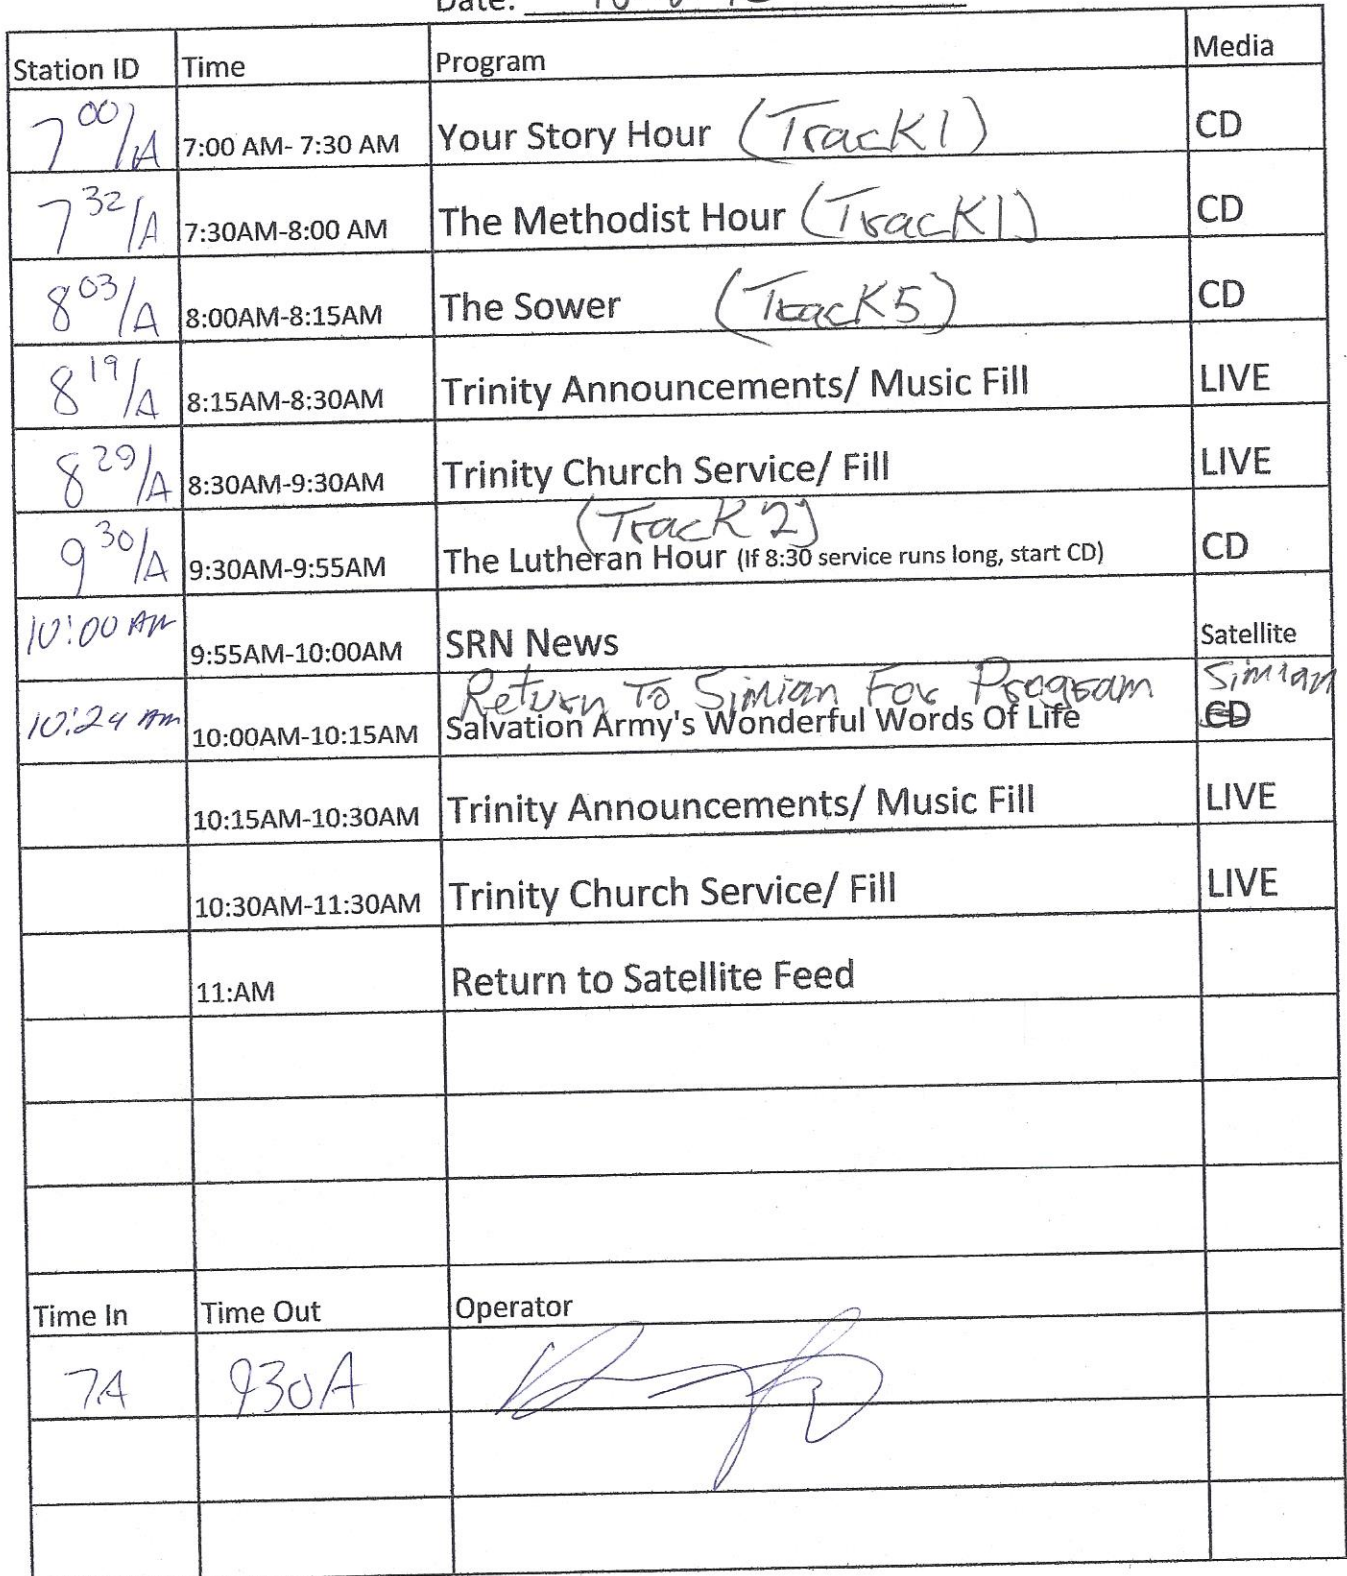 Date:
Station ID Time Program Media
7 00/A 7:00 AM- 7:30 AM Your Story Hour (Track 1) CD
7 32/A 7:30AM-8:00 AM The Methodist Hour (Track 1) CD
8 03/A 8:00AM-8:15AM The Sower (Track 5) CD
8 19/A 8:15AM-8:30AM Trinity Announcements/ Music Fill LIVE
8 29/A 8:30AM-9:30AM Trinity Church Service/ Fill LIVE
(Track 2)
9 30/A 9:30AM-9:55AM The Lutheran Hour (If 8:30 service runs long, start CD) CD
10:00 AM 9:55AM-10:00AM SRN News Satellite
Return To Simian For Program Simian
10:24 AM 10:00AM-10:15AM Salvation Army's Wonderful Words Of Life CD
10:15AM-10:30AM Trinity Announcements/ Music Fill LIVE
10:30AM-11:30AM Trinity Church Service/ Fill LIVE
11:AM Return to Satellite Feed
Time In Time Out Operator
7A 930A